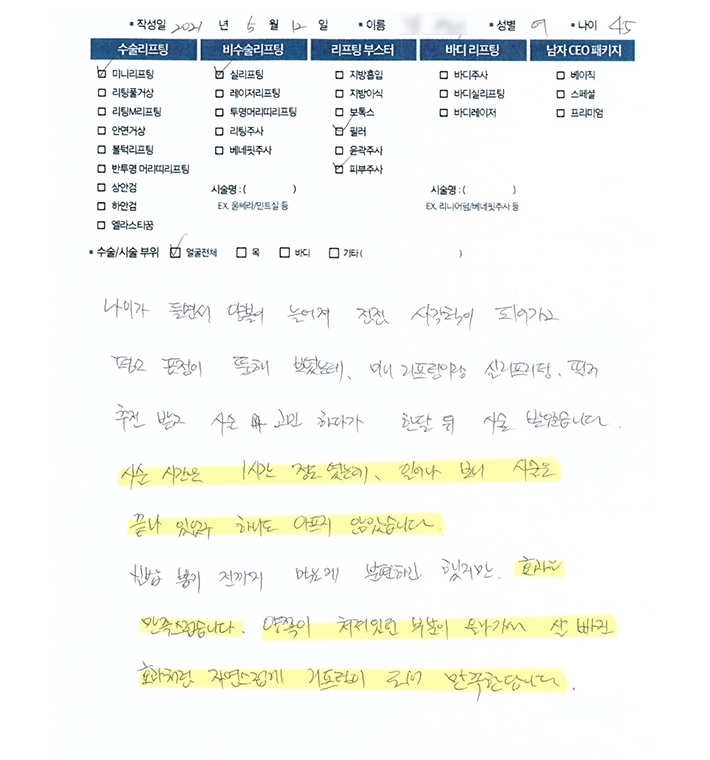 ▪ 작성일 2021 년 5 월 12 일 ▪ 이름 ▪ 성별 여 ▪ 나이 45
수술리프팅 비수술리프팅 리프팅 부스터 바디 리프팅 남자 CEO 패키지
미니리프팅 실리프팅 지방흡입 바디주사 베이직
리팅풀거상 레이저리프팅 지방이식 바디실리프팅 스페셜
리팅M리프팅 투명머리띠리프팅 보톡스 바디레이저 프리미엄
안면거상 리팅주사 필러
볼턱리프팅 베네핏주사 윤곽주사
반투명 머리띠리프팅 피부주사
상안검 시술명 : ( ) 시술명 : ( )
하안검 EX. 울쎄라/민트실 등 EX. 리니어펌/베네핏주사 등
엘라스타꿈
▪ 수술/시술 부위 얼굴전체 목 바디 기타 ( )
나이가 들면서 늘어져 점점 사각턱이 되어가고
표정이 뚱해 보였는데, 미니 리프팅이랑 실리프팅, 필러
추천 받고 시술 고민 하다가 한달 뒤 시술 받았습니다.
시술 시간은 1시간 정도 였는데, 일어나 보니 시술은
끝나 있었고 하나도 아프지 않았습니다.
전까지 불편하긴 했지만, 효과는
만족스럽습니다. 양쪽이 처져있던 부분이 올라가서 살 빠진
효과처럼 자연스럽게 리프팅이 되서 만족한답니다.